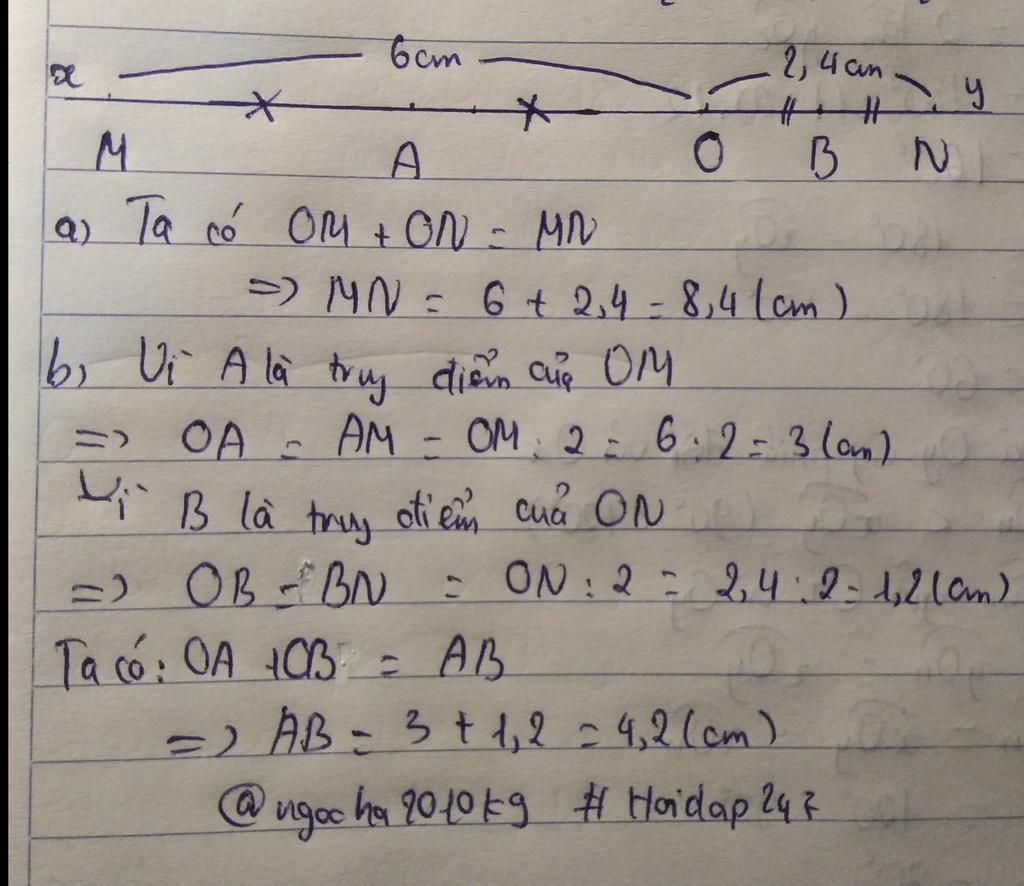 x 6cm 2,4cm y
M A O B N
a) Ta có OM + ON = MN
=> MN = 6 + 2,4 = 8,4 (cm)
b) Vì A là truy điểm của OM
=> OA = AM = OM : 2 = 6 : 2 = 3 (cm)
Vì B là truy điểm của ON
=> OB = BN = ON : 2 = 2,4 : 2 = 1,2 (cm)
Ta có: OA + OB = AB
=> AB = 3 + 1,2 = 4,2 (cm)
@ngocha2010kg # Hoidap247